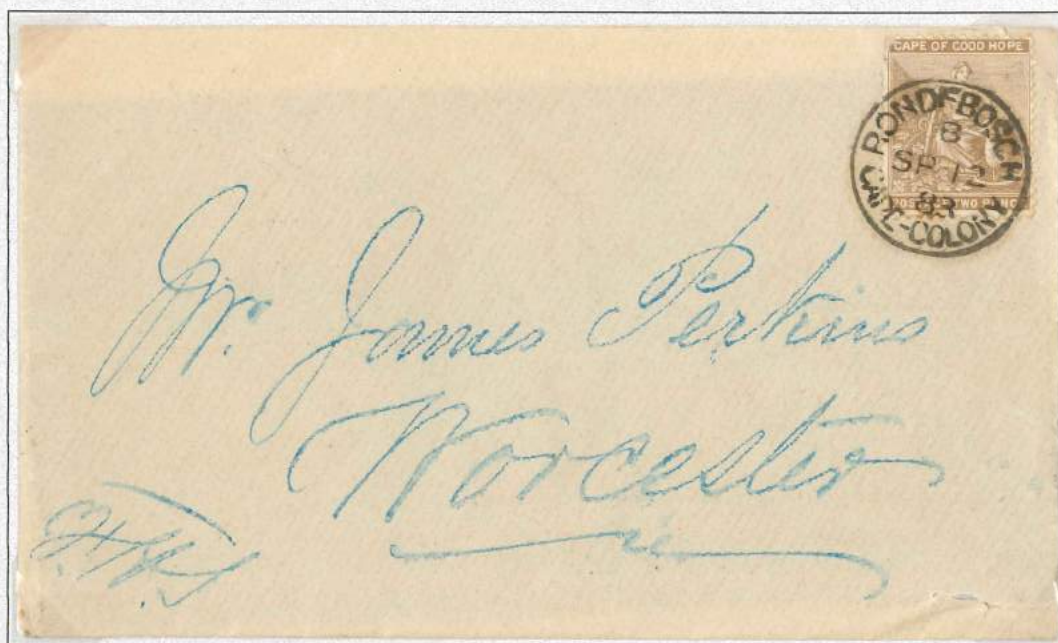 CAPE OF GOOD HOPE
RONDEBOSCH
B
SP 12
CAPE-COLONY
TWO PENCE
Mr. James Perkins
Worcester